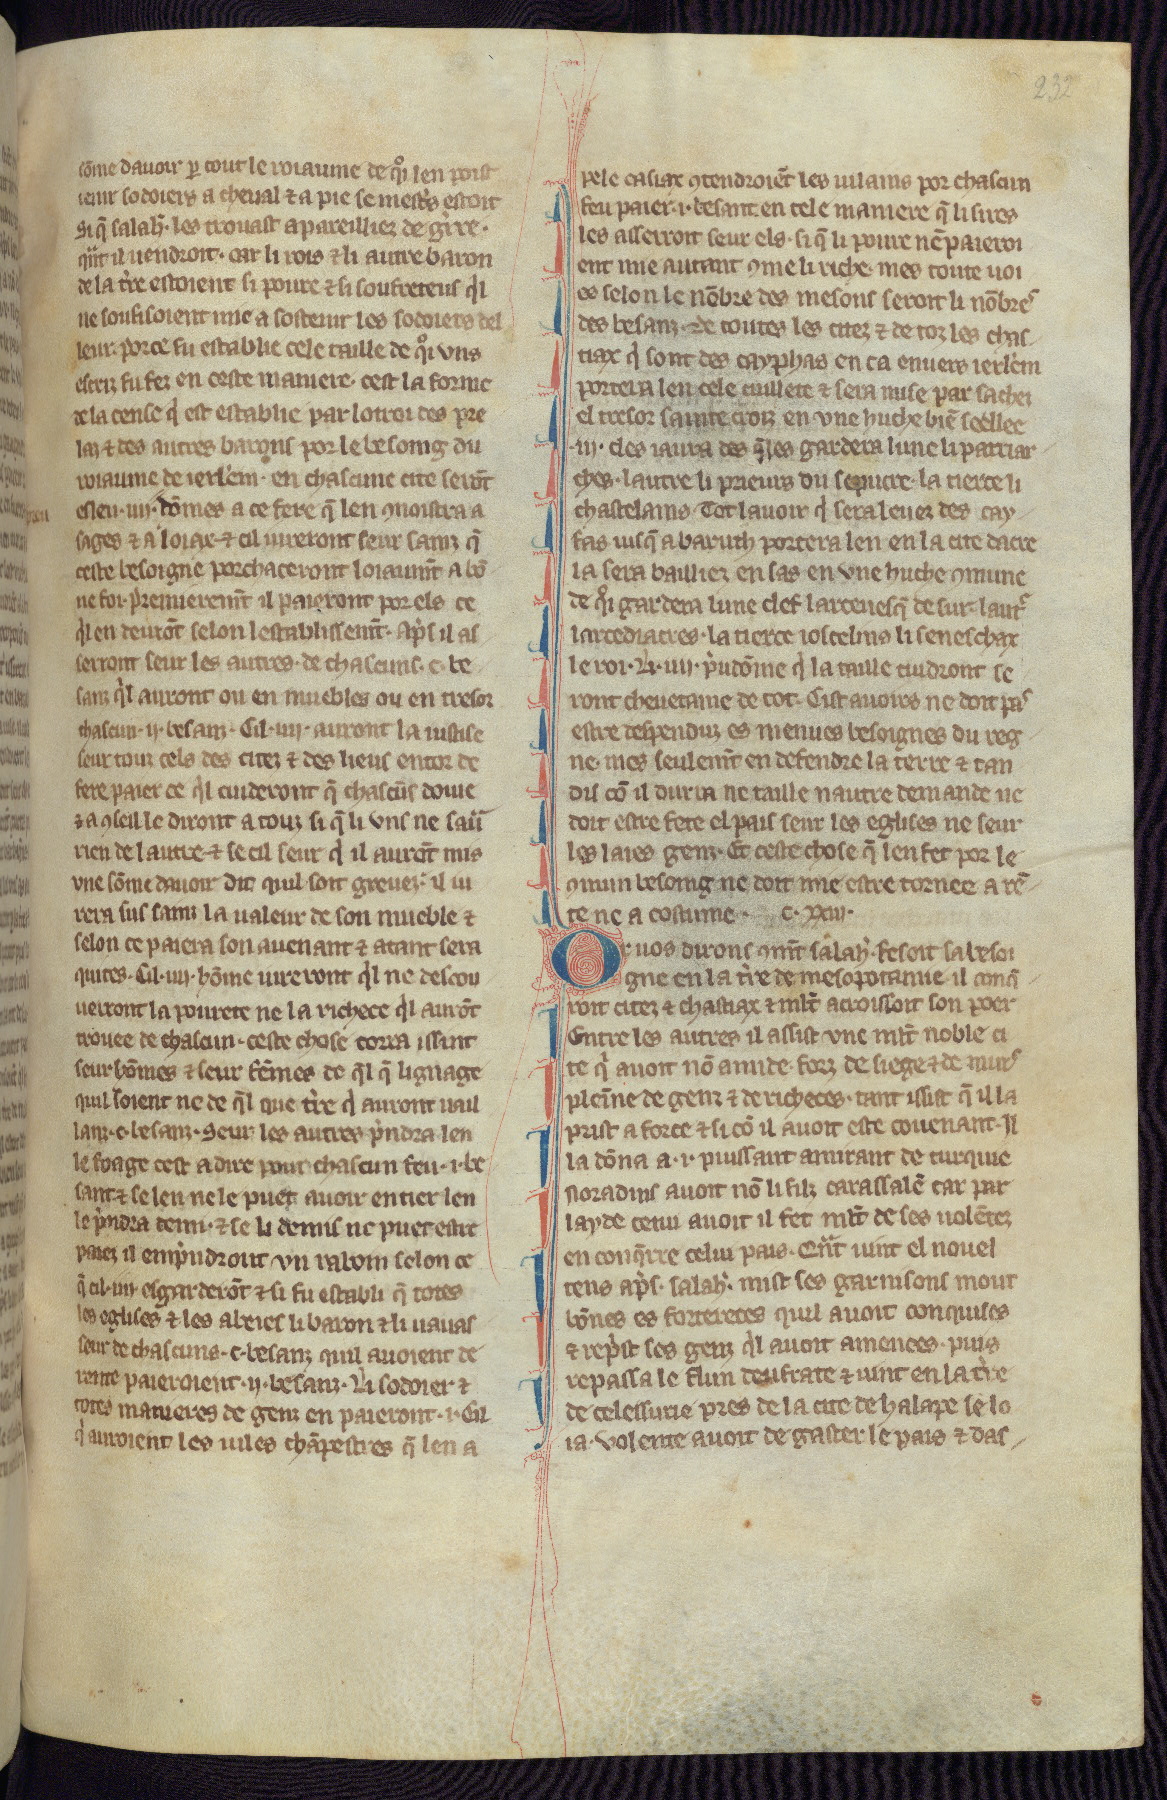 232
sōme dauoir p̱ tout le roiaume de qͦi len poist
tenir sodoiers a cheual ⁊ a pie se mestͬs estoit
si q̄ salah̄. les trouast apareilliez de gͥrre.
qͣt il uendroit. car li rois ⁊ li autre baron
de la t̄re estoient si poure ⁊ si soufreteus qͥl
ne soufisoient mie a sostenir les sodoiers del
leur. porce fu establie cele taille de qͦi vns
escriz fu fez en ceste maniere. cest la forme
de la cense qͥ est establie par lotroi des pre
laz ⁊ des autres barons por le besoing du
roiaume de ierlēm. en chascune cite serōt
esleu .iiij. bōmes a ce fere q̄ len ꝯnoistra a
sages ⁊ a loiax ⁊ cil iureront seur sainz q̄
ceste besoigne porchaceront loiaumt̄ a bō
ne foi. pͥmieremt̄ il paieront por els ce
qͥl en deurōt selon lestablissemt̄. apͤs il as
serront seur les autres. de chascuns .c. be
sanz qͥl auront ou en muebles ou en tresor
chascun .ij. besanz. Cil .iiij. auront la iustise
seur touz cels des citez ⁊ des lieus entor de
fere paier ce qͥl cuideront q̄ chascūs doiue
⁊ a ꝯseil le diront a touz si q̄ li vns ne saūˀ
rien de lautre ⁊ se cil seur qͥ il aurōt mis
vne sōme dauoir dit quil soit greuez. il iu
rera sus sainz la ualeur de son mueble ⁊
selon ce paiera son auenant ⁊ atant sera
quites. Cil .iiij. hōme iureront qͥl ne descou
ueirront la pourete ne la richece qͥl aurōt
trouee de chascun. ceste chose corra issint
seur hōmes ⁊ seur fēmes de q̄l q̄ lignage
quil soient ne de q̄l que t̄re qͥ auront uail
lanz .c. besanz. Seur les autres pͥndra len
le foage cest a dire pour chascun feu .i. be
sant ⁊ se len ne le puet auoir entier len
le pͥndra demi. ⁊ se li demis ne puet estre
paiez il empͥndront vn raboin selon ce
q̄ cil .iiij. esgarderōt ⁊ si fu establi q̄ totes
les eglises ⁊ les abeies li baron ⁊ li uauas
seur de chascuns .c. besanz quil auoient de
rente paieroient .ij. besanz. Li sodoier ⁊
totes manieres de genz en paieront .i. Cil
qͥ auroient les uiles chāpestres q̄ len a
pele casiax ꝯtendroiēt les uilains por chascun
feu paier .i. besant en tele maniere q̄ li sires
les asserroit seur els. si q̄ li poure nē paieroi
ent mie autant ꝯme li riche. mes toute uoi
es selon le nōbre des mesons seroit li nōbreˢ
des besanz. de toutes les citez ⁊ de toz les chas
tiax qͥ sont des cayphas en ca enuers ierlēm
portera len cele cuillete ⁊ sera mise par sachez
el tresor sainte croiz en vne huche biē seellee
.iij. cles iaura des q̄les gardera lune li patriar
ches. lautre li prieurs du sepucre. la tierce li
chastelains Tot lauoir qͥ sera leuez des cay
fas iusq̄ a baruth portera len en la cite dacre
la sera bailliez en sas en vne huche ꝯmune
de qͦi gardera lune clef larceuesq̄ de sur. lautͬ
larcediacres. la tierce ioscelins li seneschax
le roi. Li .iiij. pͥudōme qͥ la taille cuidront se
ront cheuetaine de tot. Cist auoirs ne doit paˢ
estre despenduz es menues besoignes du reg
ne. mes seulemt̄ en defendre la terre ⁊ tan
dis cō il durra ne taille nautre demande ne
doit estre fete el pais seur les eglises ne seur
les laies genz. Et ceste chose q̄ len fet por le
ꝯmun besoing ne doit mie estre tornee a rē
te ne a costume. c. xxiii.
Or uos dirons ꝯmt̄ salah̄. fesoit sa besoi
gne en la t̄re de mesopotamie. il conq̄
roit citez ⁊ chastiax ⁊ ml̄t acroissoit son poer
Entre les autres il assist vne ml̄t noble ci
te qͥ auoit nō amide. forz de siege ⁊ de mursˢ
pleīne de genz ⁊ de richeces. tant issist q̄ il la
prist a force ⁊ si cō il auoit este couenant. Il
la dōna a .i. puissant amirant de turquie
Noradins auoit nō li filz carassalē car par
layde celui auoit il fet ml̄t de ses uolētez
en conq̄rre celui pais. Qͣt uint el nouel
tens apͤs. salah̄. mist ses garnisons mout
bōnes es forterces quil auoit conquises
⁊ repͥst ses genz qͥl auoit amenees. puis
repassa le flun deufrate ⁊ uint en la t̄re
de celessurie pres de la cite de halape se lo
ia. Volente auoit de gaster le pais ⁊ das